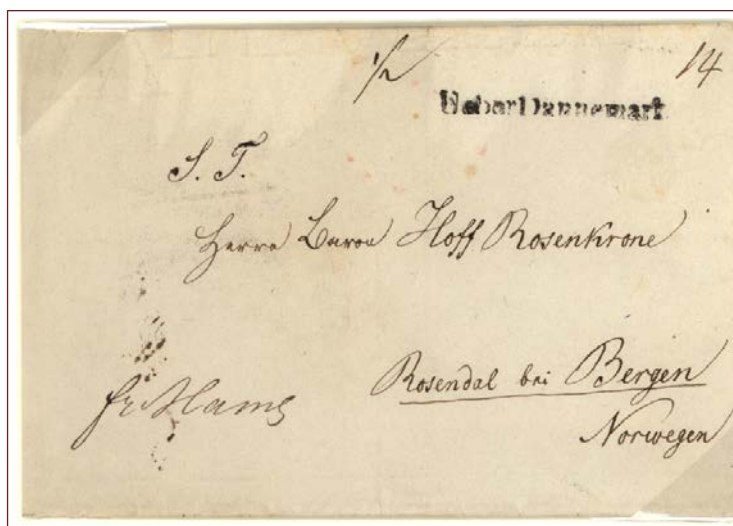 1/2 14
Ueber Dannemark
S. T.
Herrn Baron Hoff Rosenkrone
Rosendal bei Bergen
fr
Norwegen